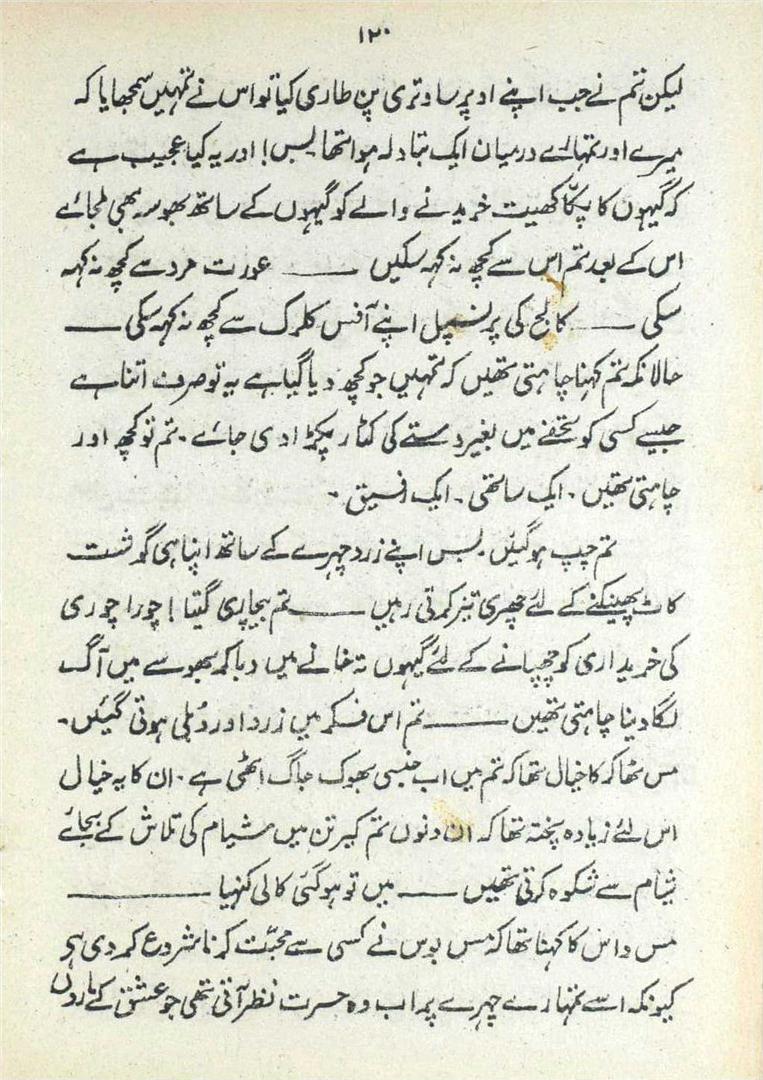 ۱۲۰
لیکن تم نے جب اپنے اوپر ساوتری پن طاری کیا تو اس نے تمہیں سمجھایا کہ
میرے اور تمہارے درمیان ایک تبادلہ ہوا تھا بس! اور یہ کیا عجیب ہے
کہ گیہوں کا پکّا کھیت خریدنے والے کو گیہوں کے ساتھ بھوسہ بھی ملجائے
اس کے بعد تم اس سے کچھ نہ کہہ سکیں ـــــ عورت مرد سے کچھ نہ کہہ
سکی ـــــ کالج کی پرنسپل اپنے آفس کلرک سے کچھ نہ کہہ سکی ـــــ
حالانکہ تم کہنا چاہتی تھیں کہ تمہیں جو کچھ دیا گیا ہے یہ تو صرف اتنا ہے
جیسے کسی کو تحفے میں بغیر دستے کی کٹار پکڑا دی جائے۔ تم تو کچھ اور
چاہتی تھیں۔ ایک ساتھی۔ ایک رفیق۔
تم چپ ہو گئیں۔ بس اپنے زرد چہرے کے ساتھ اپنا ہی گوشت
کاٹ پھینکنے کے لئے چھری تیز کرتی رہیں ـــــ تم بیچاری گیتا! چورا چوری
کی خریداری کو چھپانے کے لئے گیہوں تہ خانے میں دبا کر بھوسے میں آگ
لگا دینا چاہتی تھیں ـــــ تم اس فکر میں زرد اور دُبلی ہوتی گئیں۔
مس ٹھاکر کا خیال تھا کہ تم میں اب جنسی بھوک جاگ اٹھی ہے۔ ان کا یہ خیال
اس لئے زیادہ پختہ تھا کہ ان دنوں تم کیرتن میں شیام کی تلاش کے بجائے
شیام سے شکوہ کرتی تھیں ـــــ میں تو ہو گئی کالی کنہیا ـــــ
مس داس کا کہنا تھا کہ مس بوس نے کسی سے محبّت کرنا شروع کر دی ہے
کیونکہ اسے تمہارے چہرے پر اب وہ حسرت نظر آتی تھی جو عشق کے ماروں